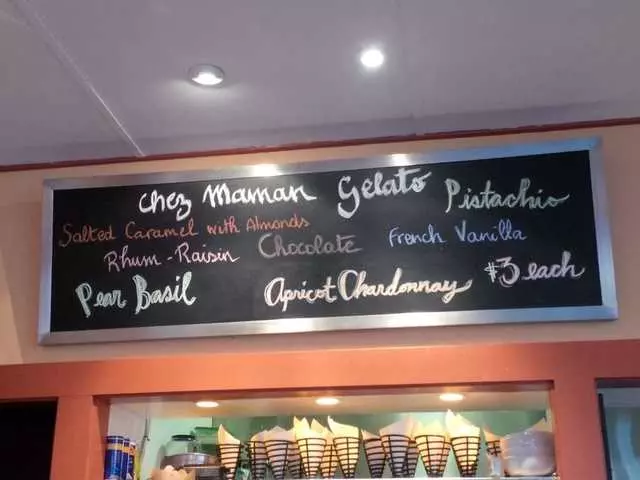 Chez Maman Gelato Pistachio
Salted Caramel with Almonds
Rhum-Raisin Chocolate French Vanilla
Pear Basil Apricot Chardonnay $3 each